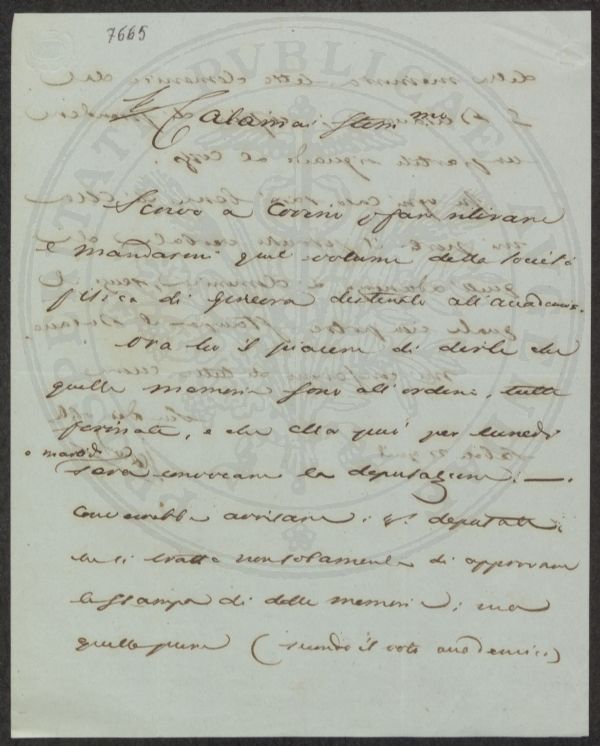 7665
Calamai Stim.mo
Scrivo a Corsini p. far ritirare
e mandarmi quel volume della Società
fisica di Ginevra destinato all'Accademia.
Ora ho il piacere di dirle che
quelle memorie sono all'ordine, tutte
firmate, e che Ella può per lunedì
o martedì
sera convocare la deputazione. —
Converrebbe avvisare i Sig. deputati
che si tratta non solamente di approvare
la stampa di dette memorie, ma
quelle pure (secondo il voto accademico)